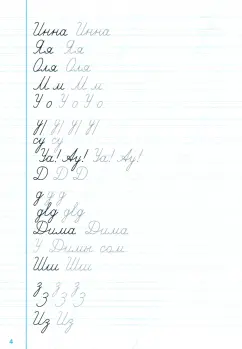 Инна Инна
Яя Яя
Оля Оля
М м М м
У о У о У о
у у у у
су су
Уа! Ау! Уа! Ау!
Д Д Д
д д д
двд двд
Дима Дима
У Димы сом
Шш Шш
з з з з
Из Из
4